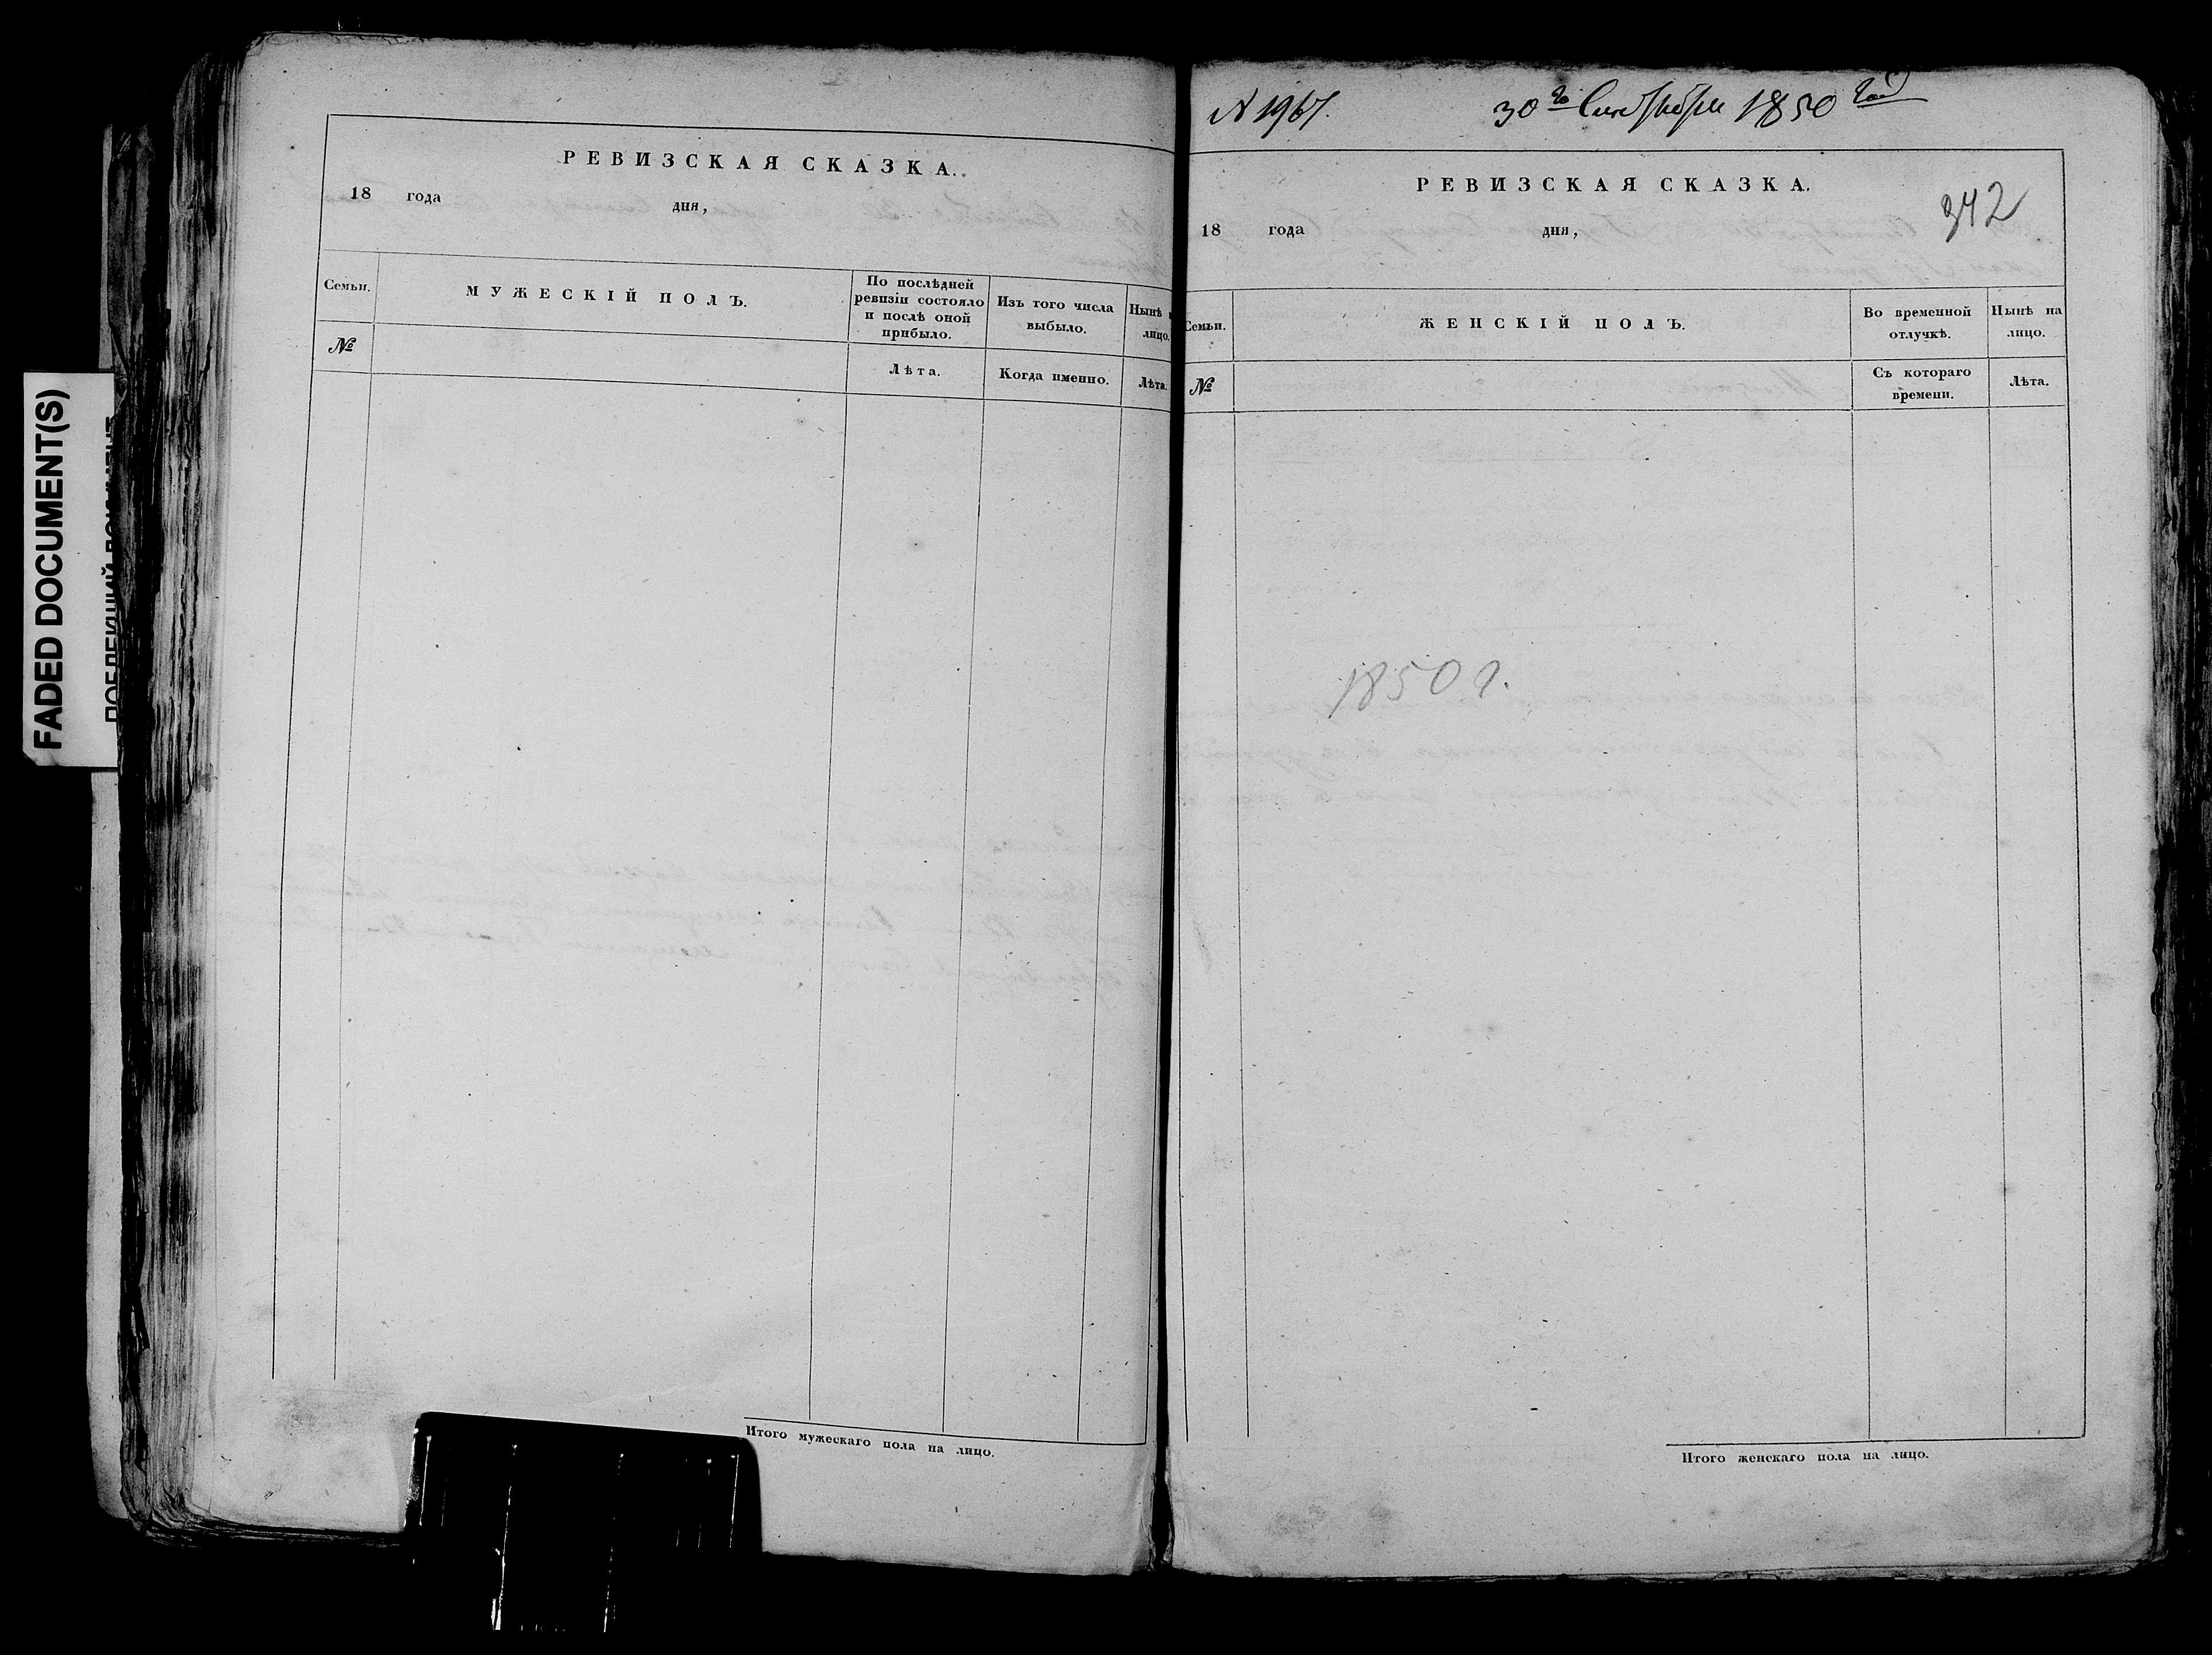 FADED DOCUMENT(S)
РЕВИЗСКАЯ СКАЗКА.
18 года дня,
Семьи.
МУЖЕСКІЙ ПОЛЪ.
По послѣдней
ревизіи состояло
и послѣ оной
прибыло.
Изъ того числа
выбыло.
Нынѣ
лицо.
№
Лѣта.
Когда именно.
Лѣта.
Итого мужескаго пола на лицо.
30го Сентября 1850 года
РЕВИЗСКАЯ СКАЗКА.
342
18 года дня,
Семьи.
ЖЕНСКІЙ ПОЛЪ.
Во временной
отлучкѣ.
Нынѣ на
лицо.
№
Съ котораго
времени.
Лѣта.
1850 г.
Итого женскаго пола на лицо.